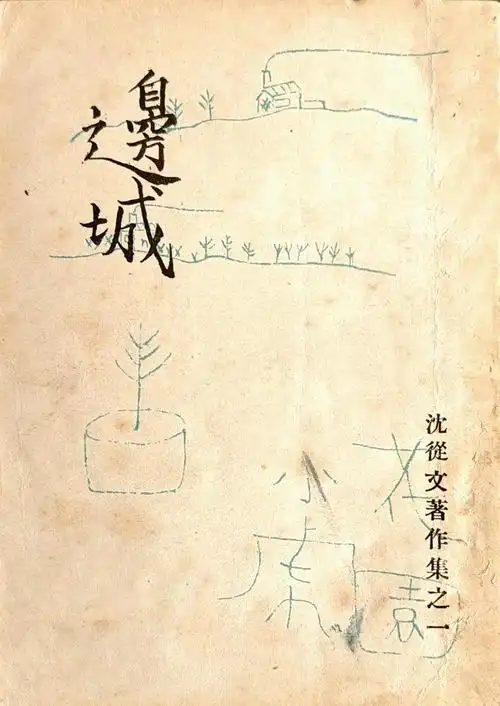 邊城
沈從文著作集之一
小虎
花園